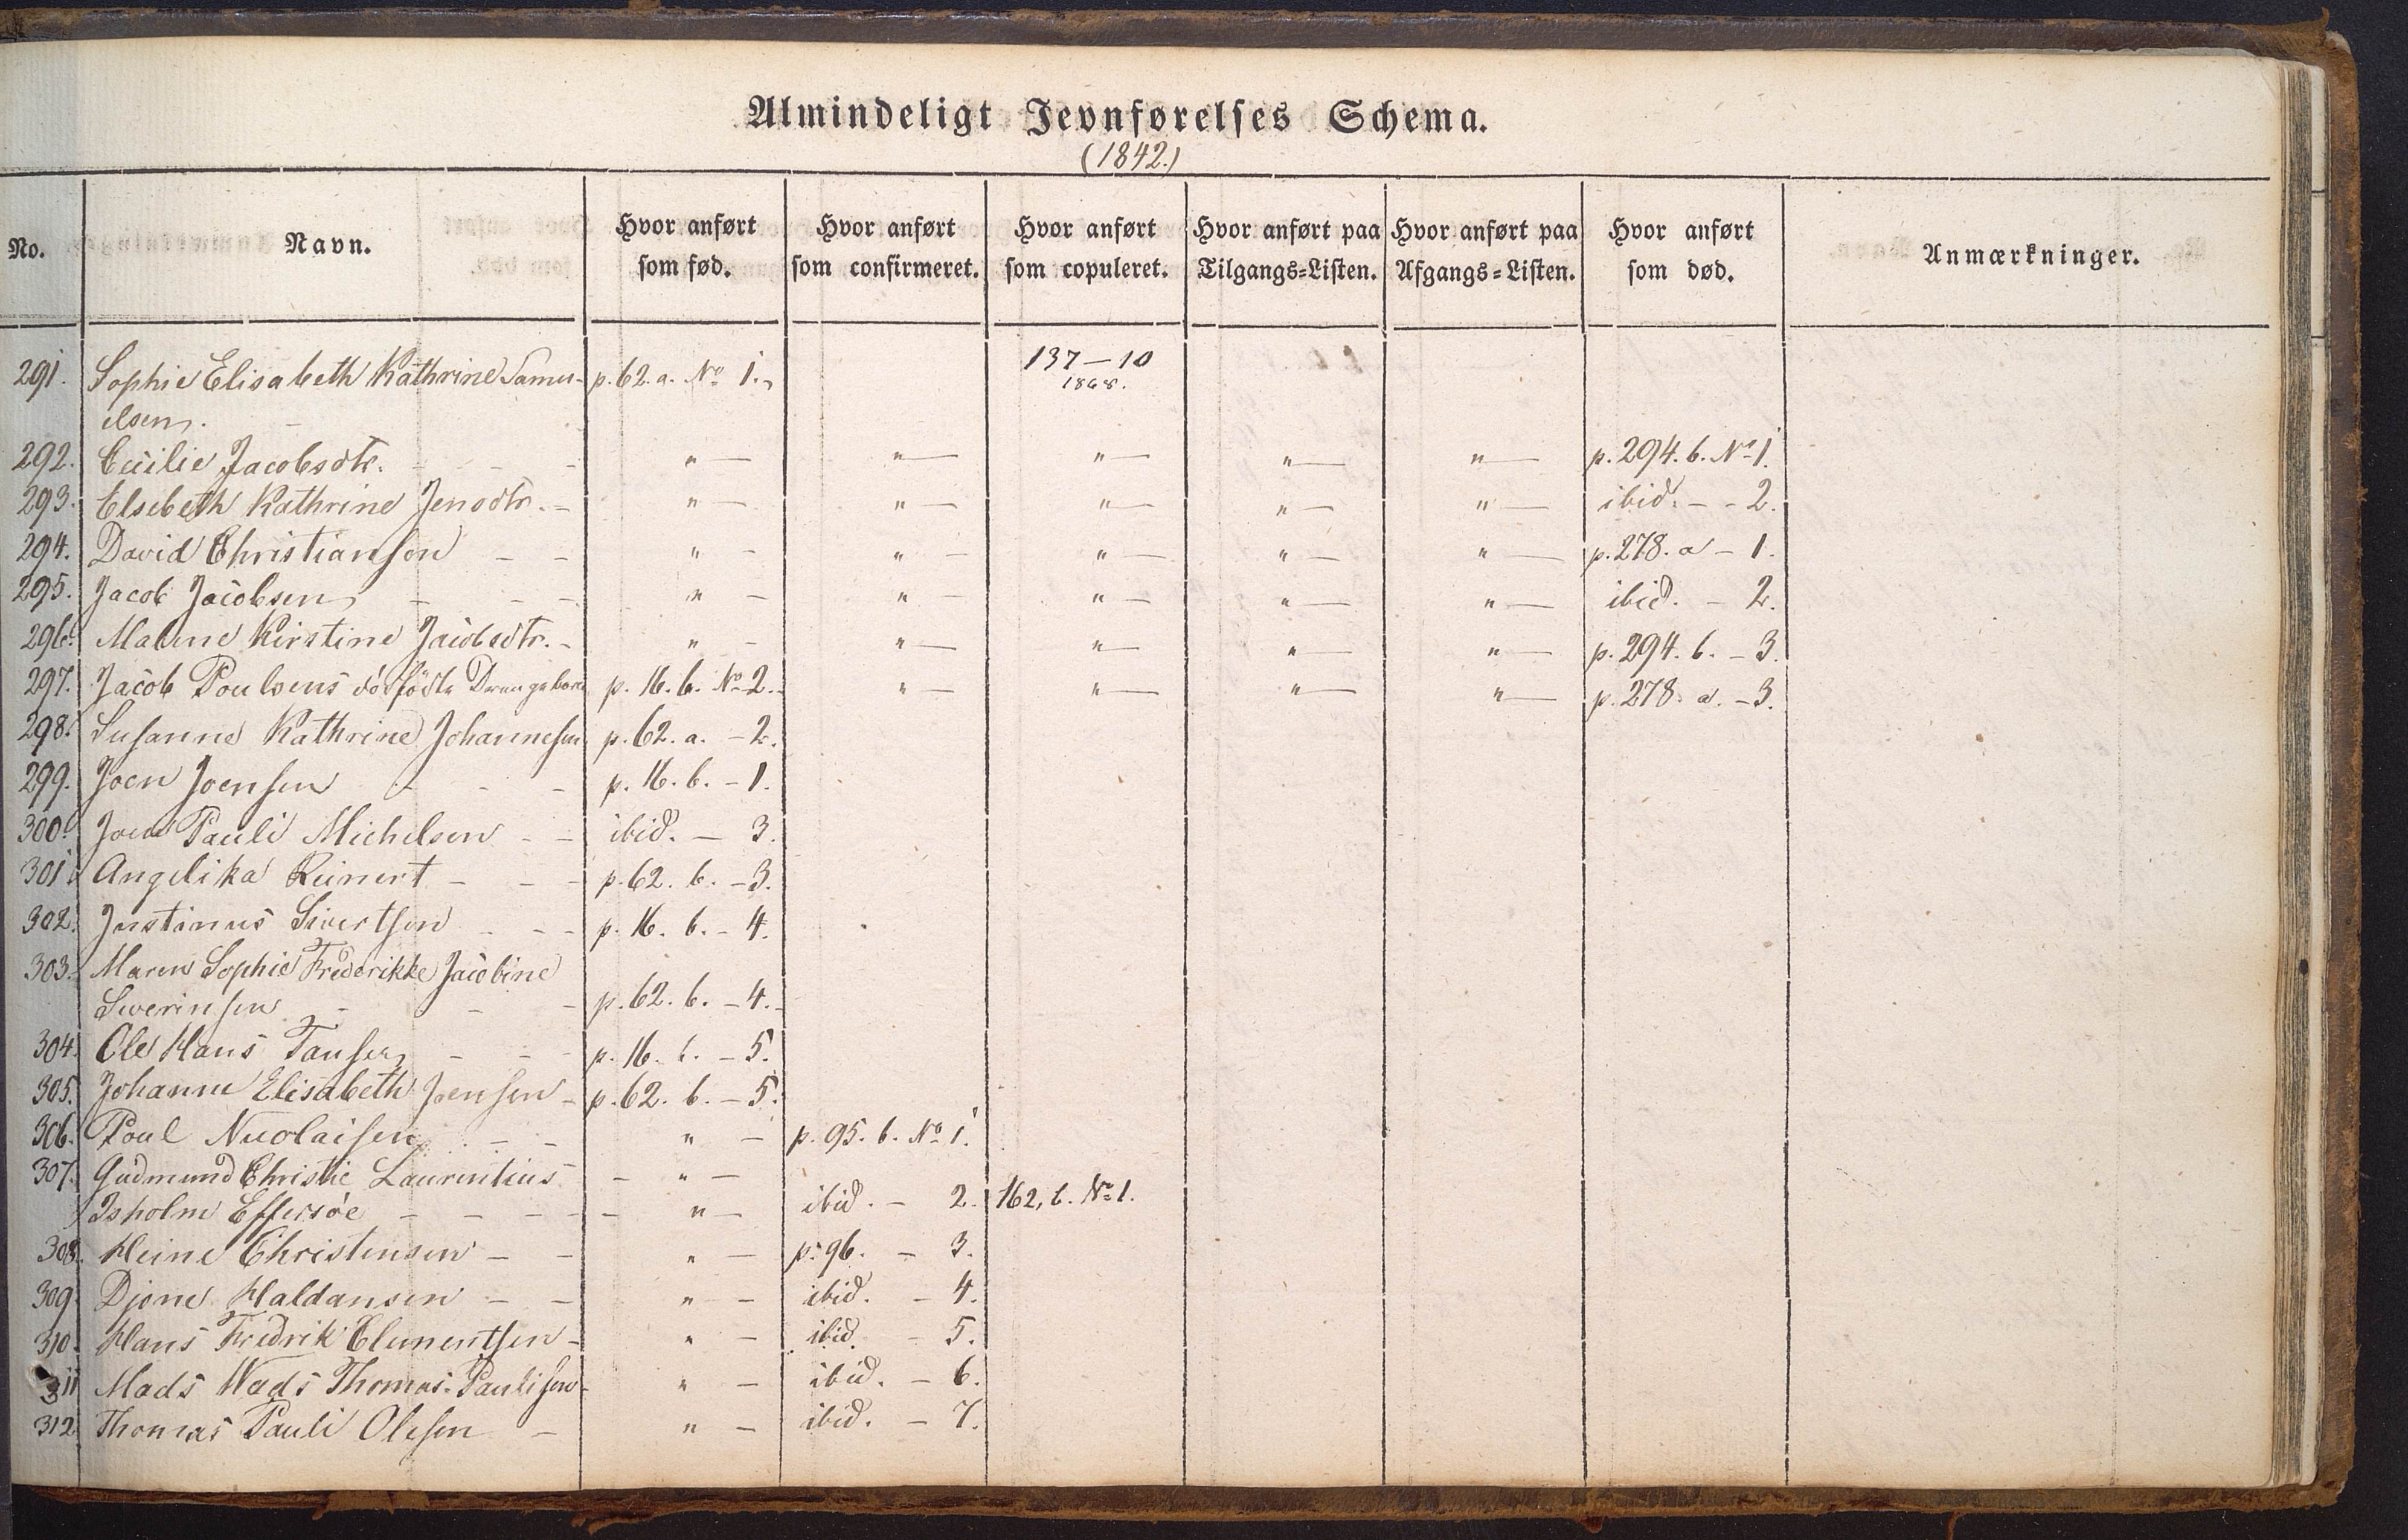 Almindeligt Jevnførelses Schema.
(1842.)
No. Navn. Hvor anført som fød. Hvor anført som confirmeret. Hvor anført som copuleret. Hvor anført paa Tilgangs=Listen. Hvor anført paa Afgangs=Listen. Hvor anført som død. Anmærkninger.
291. Sophie Elisabeth Kathrine Samu- p. 62. a. No 1. 137—10
elsen. 1868.
292. Cecilie Jacobsdtr. - - - " — " — " — " — " — p. 294. b. No 1.
293. Elsebeth Kathrine Jensdtr. - " — " — " — " — " — ibid. - - 2.
294. David Christiansen - - " - " - " — " — " — p. 278. a - 1.
295. Jacob Jacobsen - - - " - " - " — " — " — ibid. - 2.
296. Malene Kirstine Jacobsdtr. - " - " — " — " — " — p. 294. b. - 3.
297. Jacob Poulsens dødfødte Drengebarn p. 16. b. No 2. " — " — " — " — p. 278. a. - 3.
298. Susanne Kathrine Johannesen p. 62. a. - 2.
299. Joen Joensen - - - p. 16. b. - 1.
300. Joen Pauli Michelsen - - ibid. - 3.
301. Angelika Reinert - - - p. 62. b. - 3.
302. Justinus Sivertsen - - - p. 16. b. - 4.
303. Maren Sophie Frederikke Jacobine
Severinsen - - - p. 62. b. - 4.
304. Ole Hans Tausen - - - p. 16. b. - 5.
305. Johanne Elisabeth Joensen - p. 62. b. - 5.
306. Poul Nicolaisen - - " - p. 95. b. No 1.
307. Gudmund Christie Laurentius - " -
Isholm Effersøe - - - - - " - ibid. - 2. 162, b. No 1.
308. Heine Christensen - - " - p. 96. - 3.
309. Djone Haldansen - - " - ibid. - 4.
310. Hans Fredrik Clementsen - " - ibid - 5.
311 Mads Wads Thomas Paulisen - " - ibid. - 6.
312 Thomas Pauli Olesen - " - ibid. - 7.